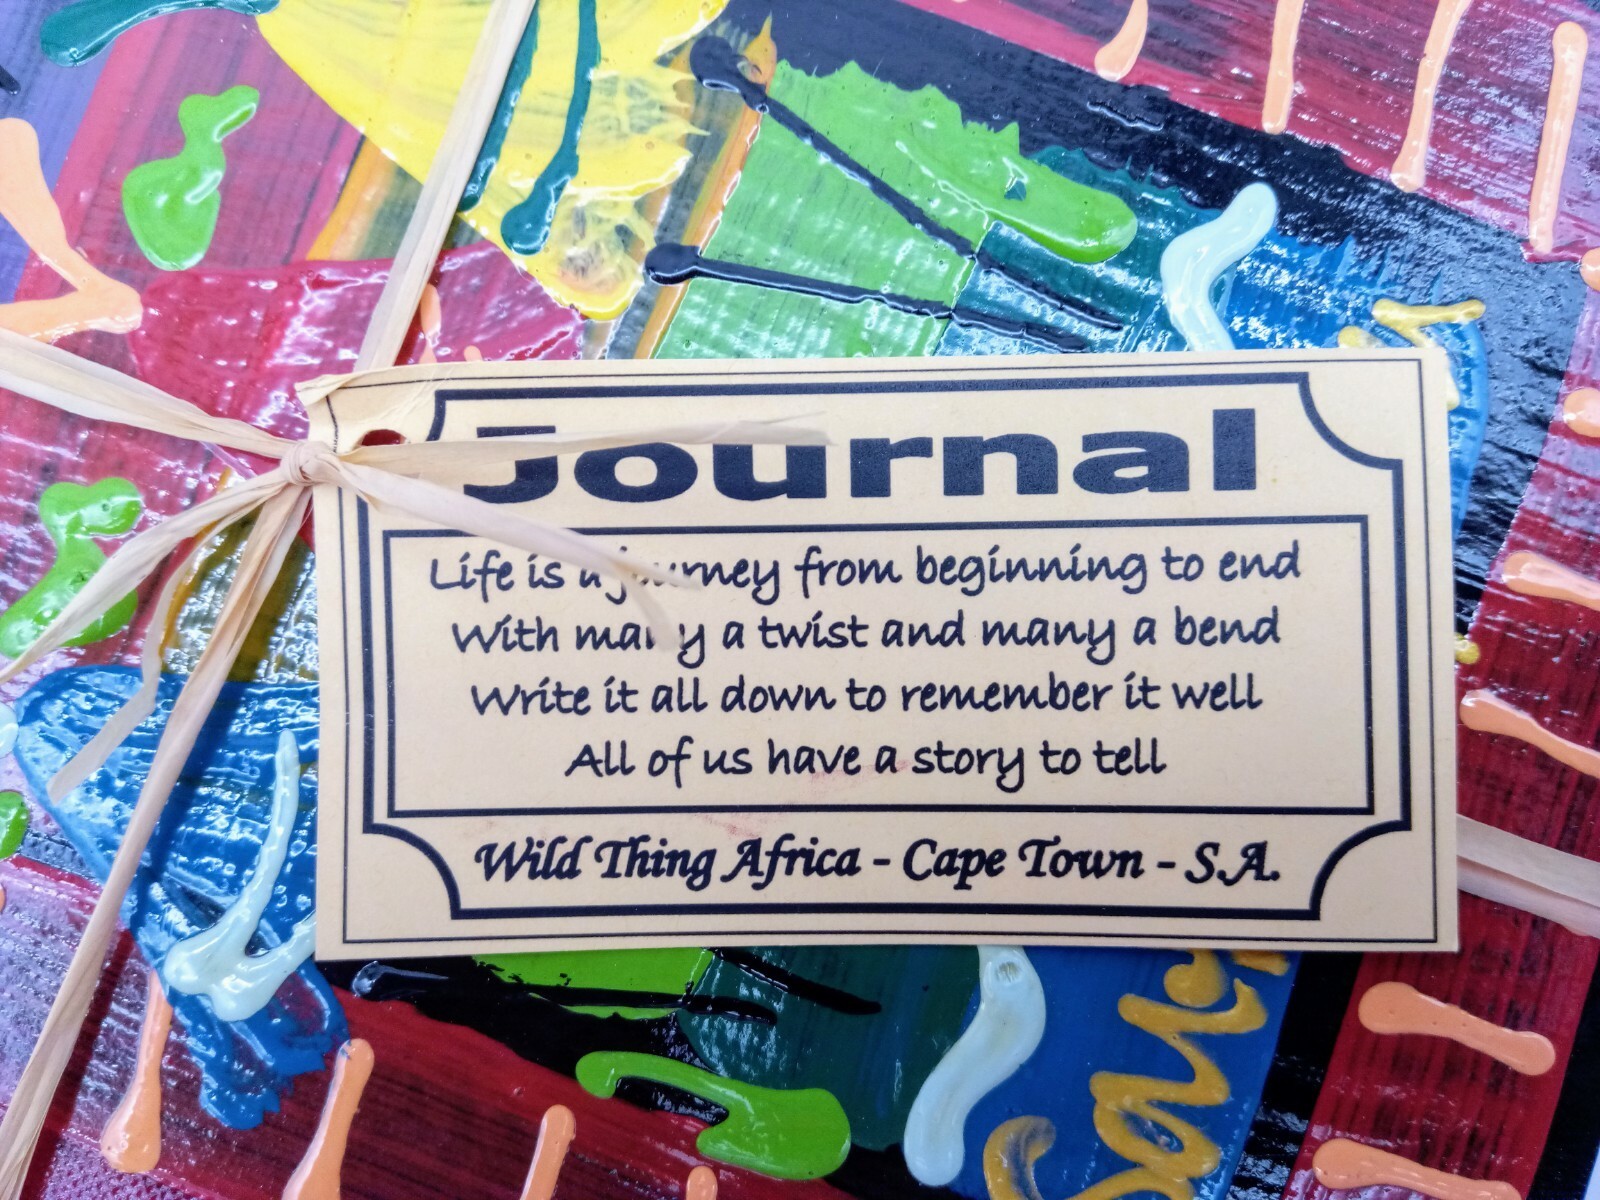 Journal
Life is a journey from beginning to end
With many a twist and many a bend
Write it all down to remember it well
All of us have a story to tell
Wild Thing Africa - Cape Town - S.A.